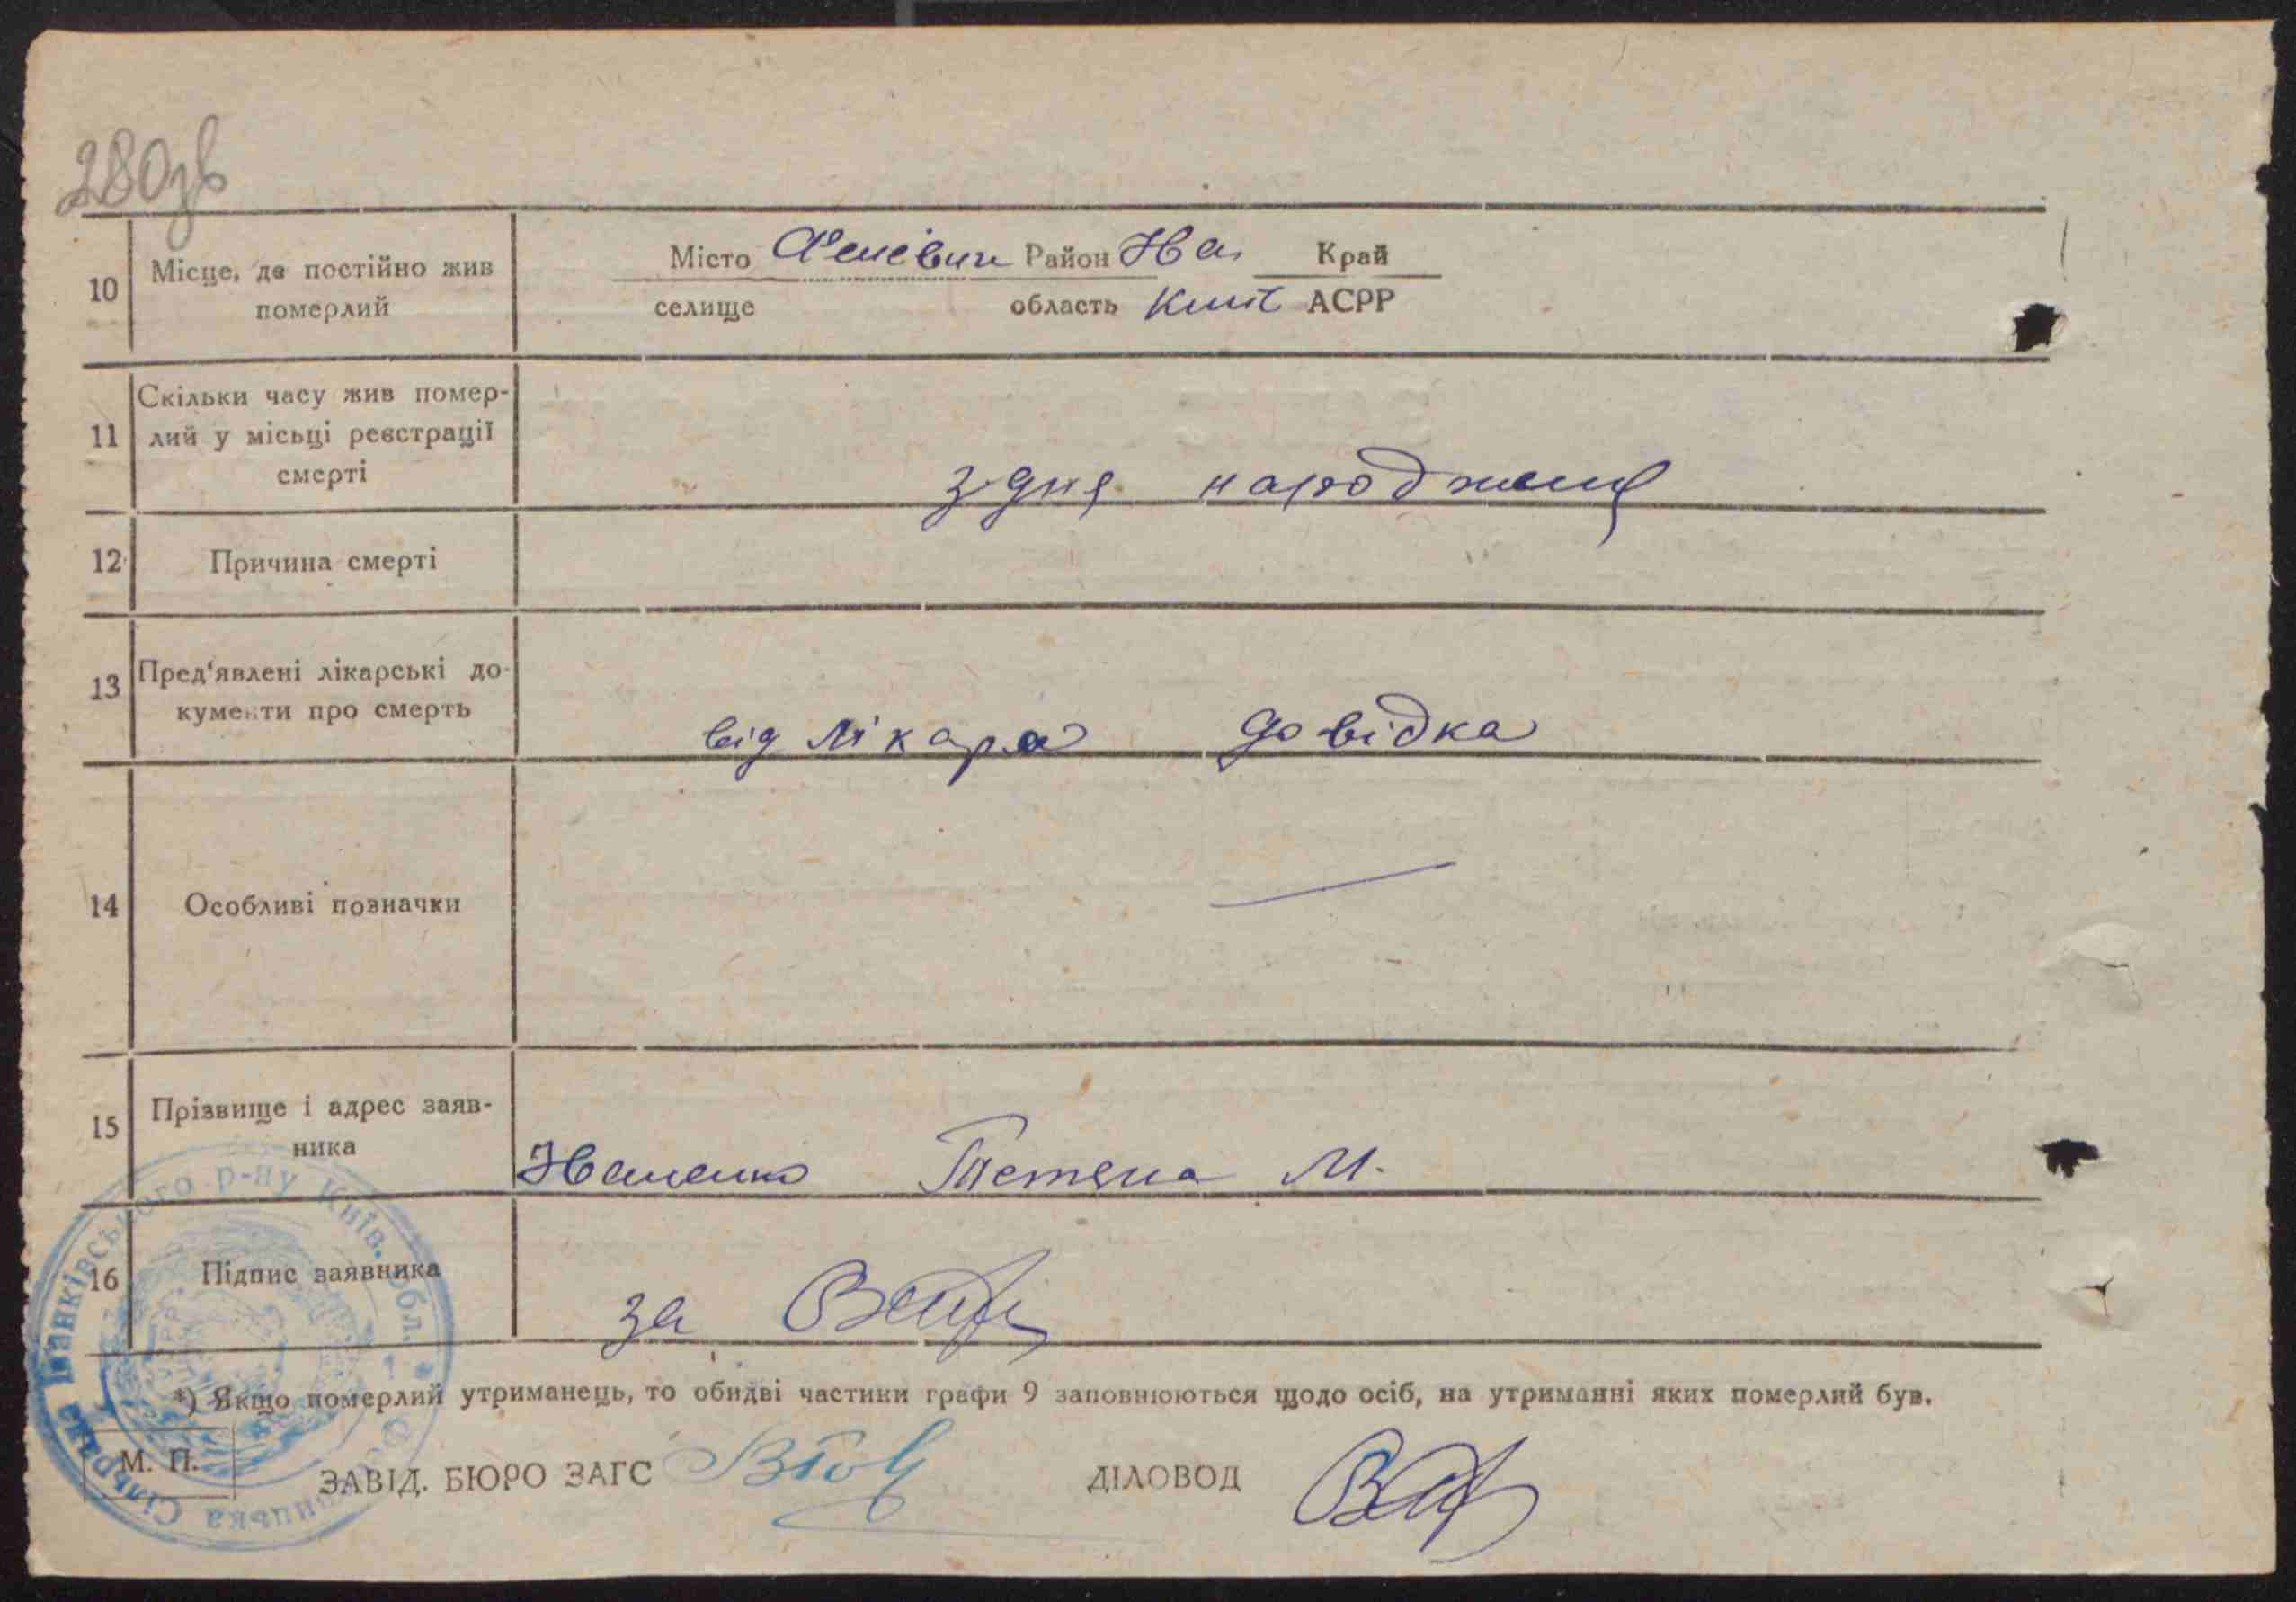 280зв
10 Місце, де постійно жив померлий
Місто Феневичі Район Іва. Край
селище область Київ АСРР
11 Скільки часу жив помер-
лий у місьці реєстрації
смерті
з дня народження
12 Причина смерті
13 Пред'явлені лікарські до-
кументи про смерть
від лікара довідка
14 Особливі позначки
15 Прізвище і адрес заяв-
ника
Іваненко Тетяна М.
16 Підпис заявника
за
*) Якщо померлий утриманець, то обидві частини графи 9 заповнюються щодо осіб, на утриманні яких померлий був.
М. П.
ЗАВІД. БЮРО ЗАГС ДІЛОВОД
Сільрада Іванківського р-ну Київ. Обл.